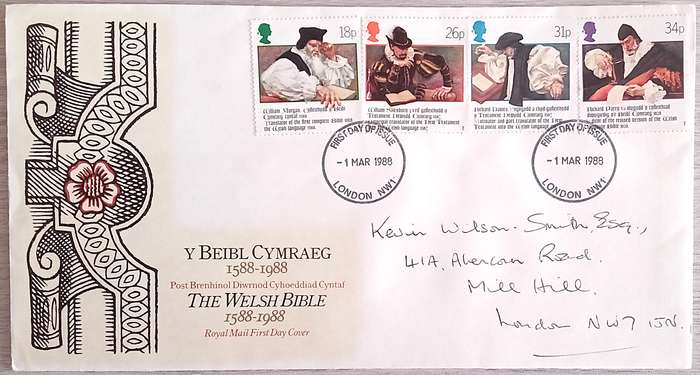 18p
William Morgan, Cyfieithydd y Beibl
Cymraeg cyntaf 1588
Translator of the first complete Bible into
the Welsh language 1588
26p
William Salesbury Prif gyfieithydd y
Testament Newydd Cymraeg 1567
Principal translator of the New Testament
into the Welsh language 1567
31p
Richard Davies
Testament Newydd Cymraeg 1567
translator of the New
Testament into the Welsh language 1567
34p
Richard Parry
of the revised version of the Welsh
Bible 1620
FIRST DAY OF ISSUE
-1 MAR 1988
LONDON NW1
FIRST DAY OF ISSUE
-1 MAR 1988
LONDON NW1
Kevin Wilson-Smith, Esq.,
41A, Abercorn Road.
Mill Hill.
London NW7 1JN.
Y BEIBL CYMRAEG
1588-1988
Post Brenhinol Diwrnod Cyhoeddiad Cyntaf
THE WELSH BIBLE
1588-1988
Royal Mail First Day Cover